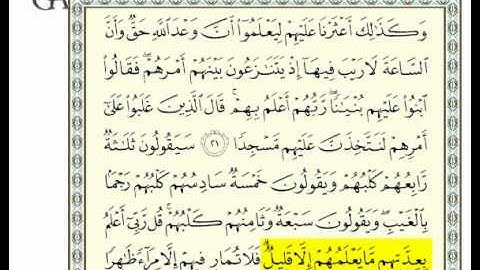 GA
وَكَذَٰلِكَ أَعْثَرْنَا عَلَيْهِمْ لِيَعْلَمُوٓا۟ أَنَّ وَعْدَ ٱللَّهِ حَقٌّ وَأَنَّ
ٱلسَّاعَةَ لَا رَيْبَ فِيهَآ إِذْ يَتَنَـٰزَعُونَ بَيْنَهُمْ أَمْرَهُمْ ۖ فَقَالُوا۟
ٱبْنُوا۟ عَلَيْهِم بُنْيَـٰنًا ۖ رَّبُّهُمْ أَعْلَمُ بِهِمْ ۚ قَالَ ٱلَّذِينَ غَلَبُوا۟ عَلَىٰٓ
أَمْرِهِمْ لَنَتَّخِذَنَّ عَلَيْهِم مَّسْجِدًا ٢١ سَيَقُولُونَ ثَلَـٰثَةٌ
رَّابِعُهُمْ كَلْبُهُمْ وَيَقُولُونَ خَمْسَةٌ سَادِسُهُمْ كَلْبُهُمْ رَجْمًۢا
بِٱلْغَيْبِ ۖ وَيَقُولُونَ سَبْعَةٌ وَثَامِنُهُمْ كَلْبُهُمْ ۚ قُل رَّبِّىٓ أَعْلَمُ
بِعِدَّتِهِم مَّا يَعْلَمُهُمْ إِلَّا قَلِيلٌ ۗ فَلَا تُمَارِ فِيهِمْ إِلَّا مِرَآءً ظَـٰهِرًا